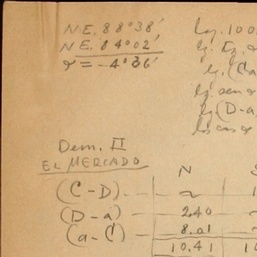 NE. 88°38'
NE. 84°02'
α = -4°36'
log. 100
lg. tg. α
lg. (Ca
lg sen α
lg (D-a)
lg cos α
Dem. II
EL MERCADO
N
(C-D) ~
(D-a) 2.40
(a-C) 8.01
10.41